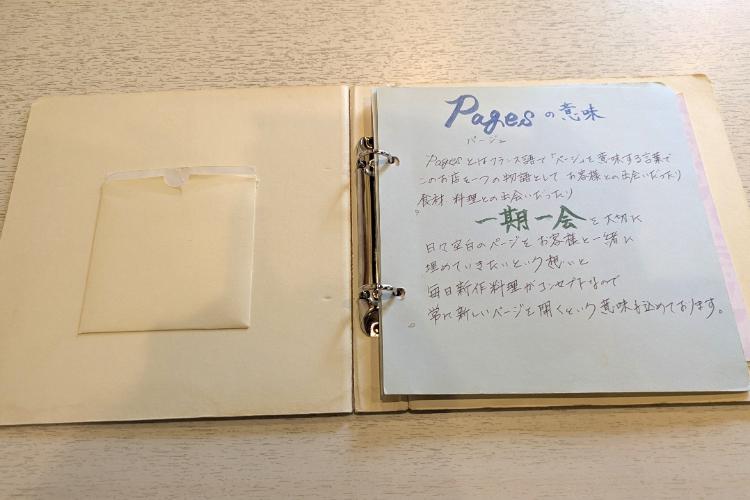 Pagesの意味
パージュ
Pagesとはフランス語で「ページ」を意味する言葉で
このお店を一つの物語として お客様との出会いだったり
食材 料理との出会いだったり
一期一会を大切に
日々空白のページをお客様と一緒に
埋めていきたいという想いと
毎日新作料理がコンセプトなので
常に新しいページを開くという意味を込めております。